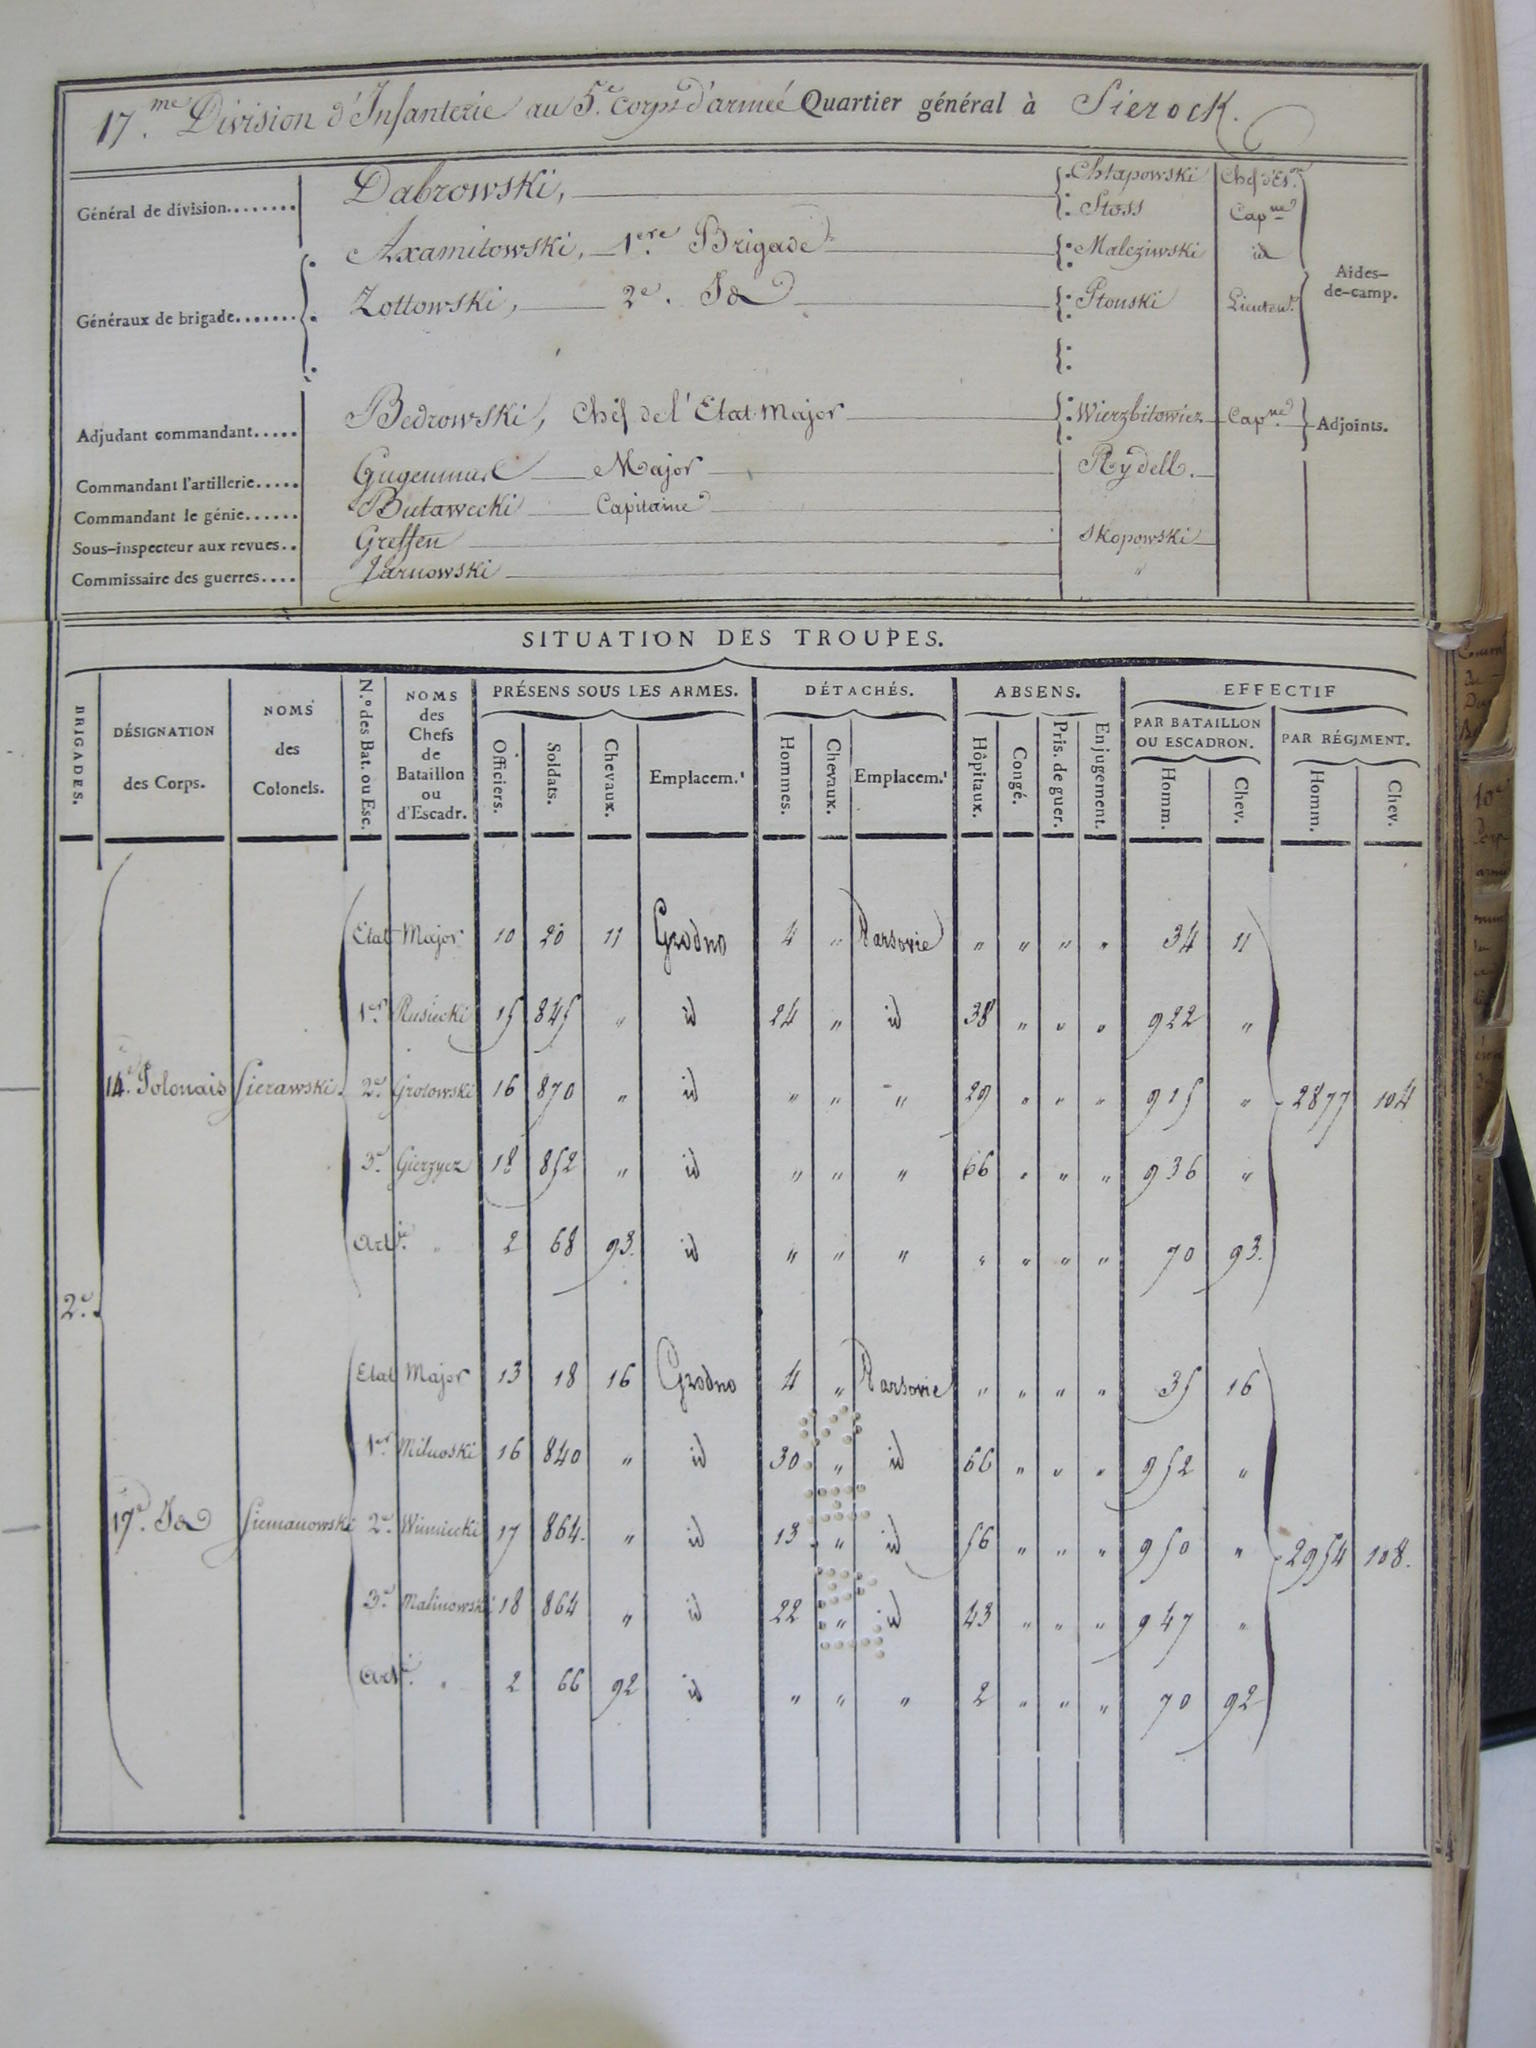 17.me Division d'Infanterie au 5.e corps d'armée Quartier général à Sierock.
Général de division........ Dabrowski, Chlapowski Chef d'Es.on
Stoss Cap.ne
Généraux de brigade....... Axamitowski, 1.ere Brigade Malcziwski id
Zottowski, 2.e Id Ptouski Lieuten.t
Aides-de-camp.
Adjudant commandant..... Bedrowski, Chef de l'Etat Major Wierzbitowicz Cap.ne Adjoints.
Commandant l'artillerie..... Major Rydell.
Commandant le génie...... Butawecki Capitaine
Sous-inspecteur aux revues.. Greffen Skopowski
Commissaire des guerres.... Jarnowski "
SITUATION DES TROUPES.
BRIGADES. DÉSIGNATION des Corps. NOMS des Colonels. N.º des Bat. ou Esc. NOMS des Chefs de Bataillon ou d'Escadr. PRÉSENS SOUS LES ARMES. DÉTACHÉS. ABSENS. EFFECTIF
PAR BATAILLON OU ESCADRON. PAR RÉGIMENT.
Officiers. Soldats. Chevaux. Emplacem.t Hommes. Chevaux. Emplacem.t Hôpitaux. Congé. Pris. de guer. Enjugement. Homm. Chev. Homm. Chev.
Etat Major 10 20 11 Grodno 4 " Varsovie " " " " 34 11
1.er Rusiecki 15 845 " id 24 " id 38 " " " 922 "
14.e Polonais Sierawski. 2.e Grotowski 16 870 " id " " " 29 " " " 915 " 2877 104
3.e Gierzycz 18 852 " id " " " 66 " " " 936 "
Art.ie " 2 68 93. id " " " " " " " 70 93.
2.e
Etat Major 13 18 16 Grodno 4 " Varsovie " " " " 35 16
1.er Miluoski 16 840 " id 30 " id 66 " " " 952 "
17.e Id Siemanowski 2.e Winniecki 17 864. " id 13 " id 56 " " " 950 " 2954 108.
3.e Malinowski 18 864 " id 22 " id 43 " " " 947 "
Art.ie " 2 66 92 id " " " 2 " " " 70 92